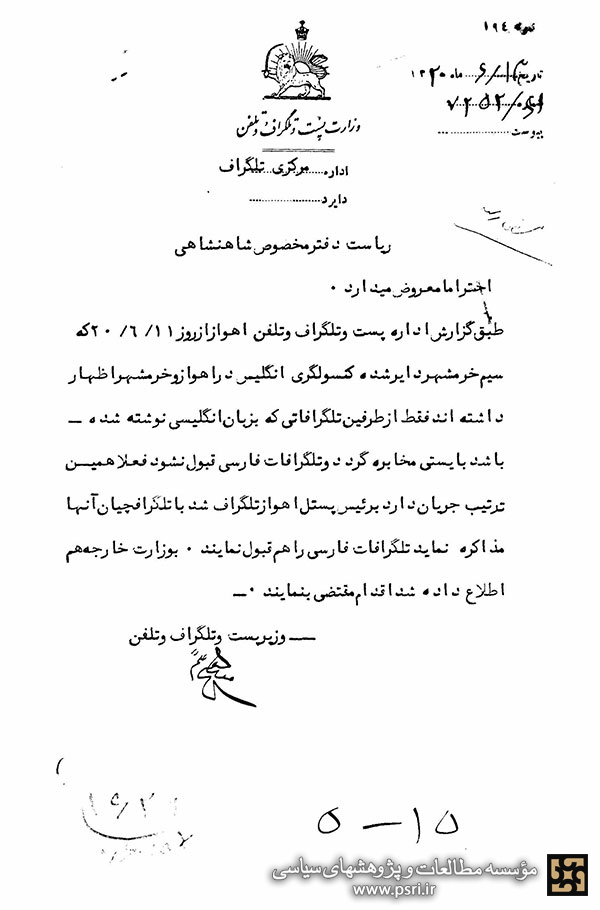 نمونه ۱۹۴
تاریخ ۱۶/۶ ماه ۱۳۲۰
پیوست
وزارت پست و تلگراف و تلفن
اداره مرکزی تلگراف
دایره
ریاست دفتر مخصوص شاهنشاهی
احتراما معروض میدارد ۰
طبق گزارش اداره پست وتلگراف وتلفن اهواز از روز ۱۱/ ۶/ ۲۰ که
سیم خرمشهر دایر شده کنسولگری انگلیس در اهواز و خرمشهر اظهار
داشته اند فقط از طرفین تلگرافاتی که بزبان انگلیسی نوشته شده ــ
باشد بایستی مخابره گردد وتلگرافات فارسی قبول نشود فعلا همیــن
ترتیب جریان دارد برئیس پستل اهواز تلگراف شد با تلگرافچیان آنها
مذاکره نماید تلگرافات فارسی را هم قبول نمایند ۰ بوزارت خارجه هم
اطلاع داده شد اقدام مقتضی بنمایند ۰ــ
ــ وزیر پست وتلگراف وتلفن
۱۵ – ۵
مؤسسه مطالعات و پژوهشهای سیاسی
www.psri.ir